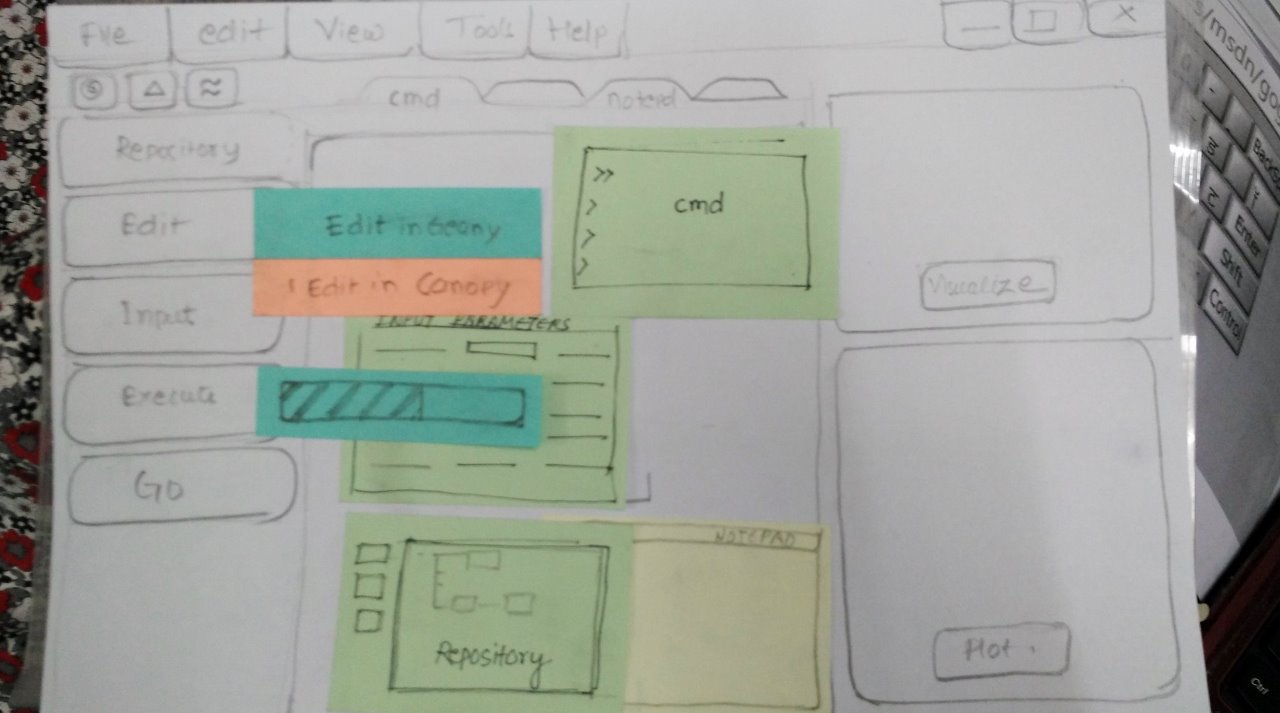 File edit View Tools Help
cmd notepd
Repository
Edit
Edit in Geany
Edit in Canopy
Input
Execute
Go
>> cmd
>
>
>
INPUT PARAMETERS
Repository
NOTEPAD
Visualize
Plot
s/msdn/go
Backs
Enter
Shift
Control
Ctrl